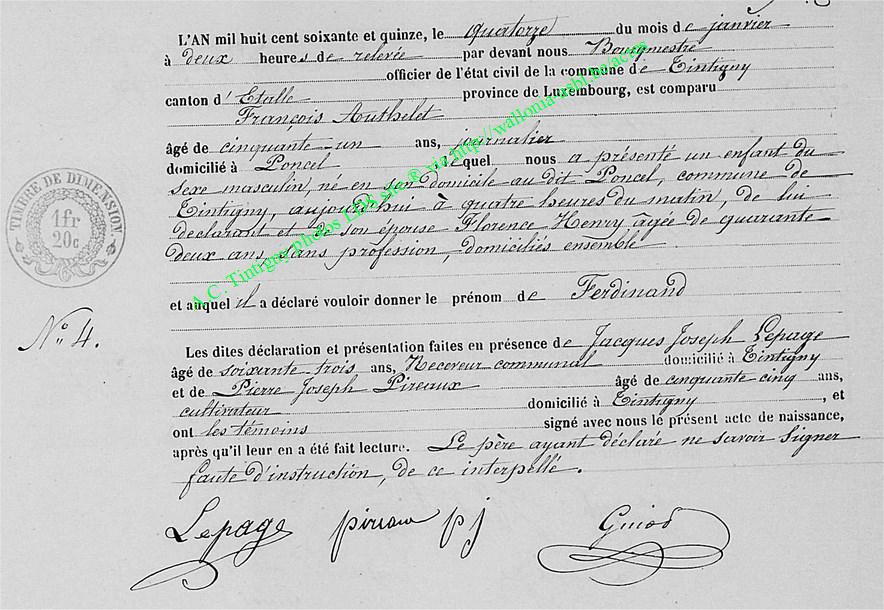 L'AN mil huit cent soixante et quinze, le quatorze du mois de janvier
à deux heures de relevée par devant nous Bourgmestre
officier de l'état civil de la commune de Tintigny
canton d'Etalle province de Luxembourg, est comparu
François Authelet
âgé de cinquante-un ans, journalier
domicilié à Poncel lequel nous a présenté un enfant du
sexe masculin, né en son domicile au dit Poncel, commune de
Tintigny, aujourd'hui à quatre heures du matin, de lui
déclarant et de son épouse Florence Henry âgée de quarante
deux ans, sans profession, domiciliés ensemble
et auquel il a déclaré vouloir donner le prénom de Ferdinand
Les dites déclaration et présentation faites en présence de Jacques Joseph Lepage
âgé de soixante-trois ans, Receveur communal domicilié à Tintigny
et de Pierre Joseph Pireaux âgé de cinquante cinq ans,
cultivateur domicilié à Tintigny, et
ont les témoins signé avec nous le présent acte de naissance,
après qu'il leur en a été fait lecture. Le père ayant déclaré ne savoir signer
faute d'instruction, de ce interpellé.
Lepage pireau pj
TIMBRE DE DIMENSION
1 fr
20 c
N° 4.
A.C. Tintigny photos LDS site ® via http://wallonia-asbl.be/actes